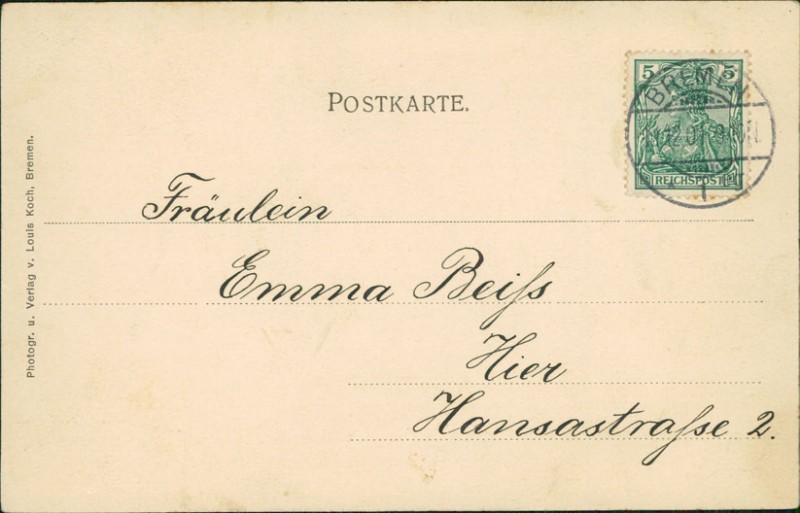 POSTKARTE.
5 5
BREMEN
REICHSPOST
1
Fräulein
Emma Beiſs
Hier
Hansastraſse 2.
Photogr. u. Verlag v. Louis Koch, Bremen.